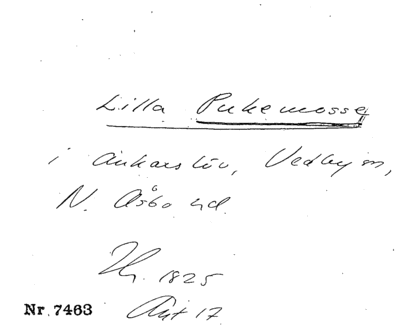 Lilla Pukemosse
i Ankarslöv, Vedby sn,
N. Åsbo hd.
1825
Akt 17
Nr. 7463